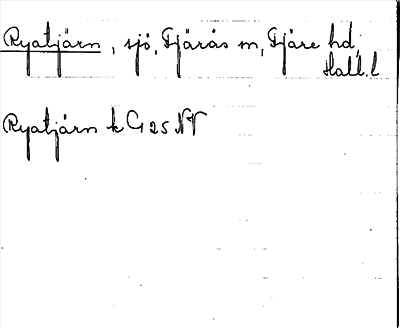 Ryatjärn, sjö, Fjärås sn, Fjäre hd,
Hall. l
Ryatjärn k G 25 NV